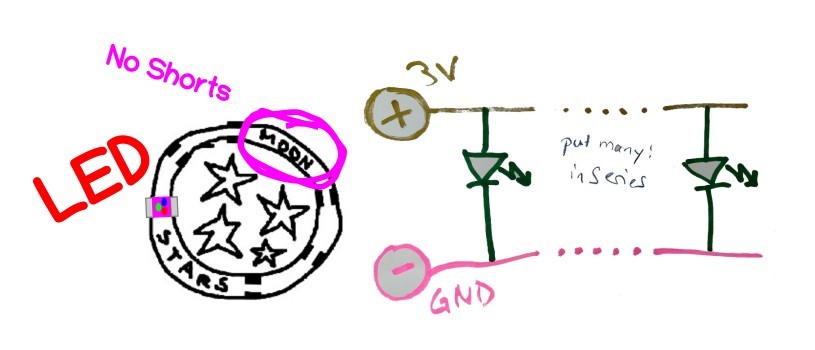 No Shorts
LED
MOON
STARS
3V
+
put many!
in Series
-
GND